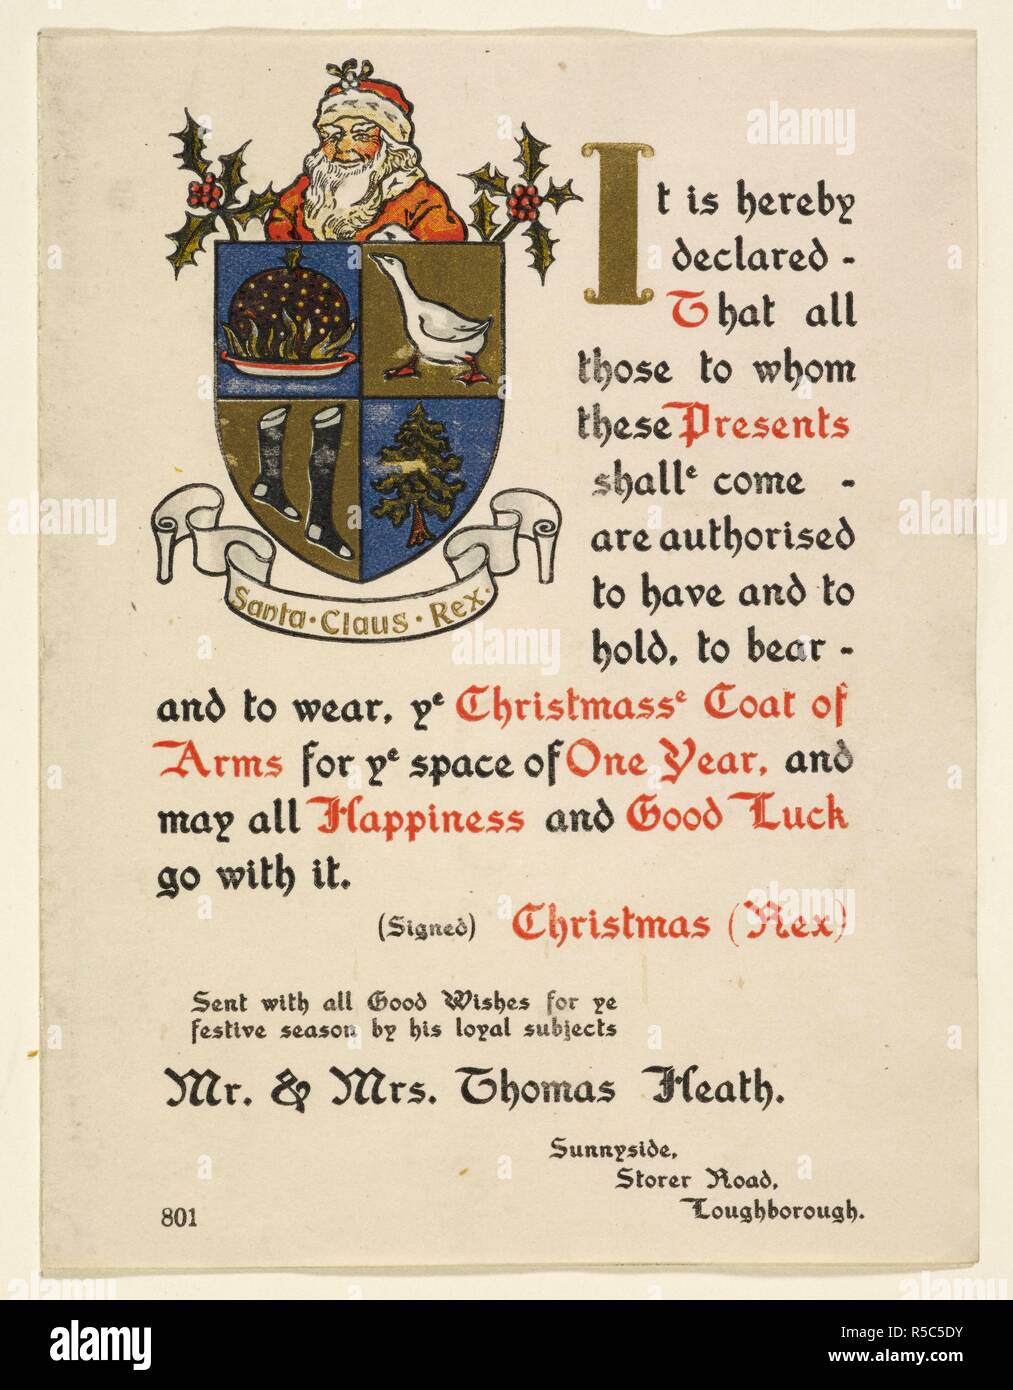 Santa · Claus · Rex ·
It is hereby
declared -
That all
those to whom
these Presents
shallᵉ come -
are authorised
to have and to
hold, to bear -
and to wear, yᵉ Christmassᵉ Coat of
Arms for yᵉ space of One Year, and
may all Happiness and Good Luck
go with it.
(Signed) Christmas (Rex)
Sent with all Good Wishes for ye
festive season by his loyal subjects
Mr. & Mrs. Thomas Heath.
Sunnyside,
Storer Road,
Loughborough.
801
alamy
Image ID: R5C5DY
www.alamy.com